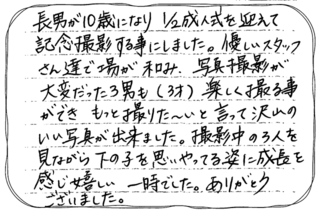 長男が10歳になり 1/2成人式を迎えて
記念撮影する事にしました。優しいスタッフ
さん達で場が和み、写真撮影が
大変だった3男も(3才)楽しく撮る事
ができ もっと撮りた~いと言って沢山の
いい写真が出来ました。撮影中の3人を
見ながら下の子を思いやってる姿に成長を
感じ嬉しい一時でした。ありがとう
ございました。